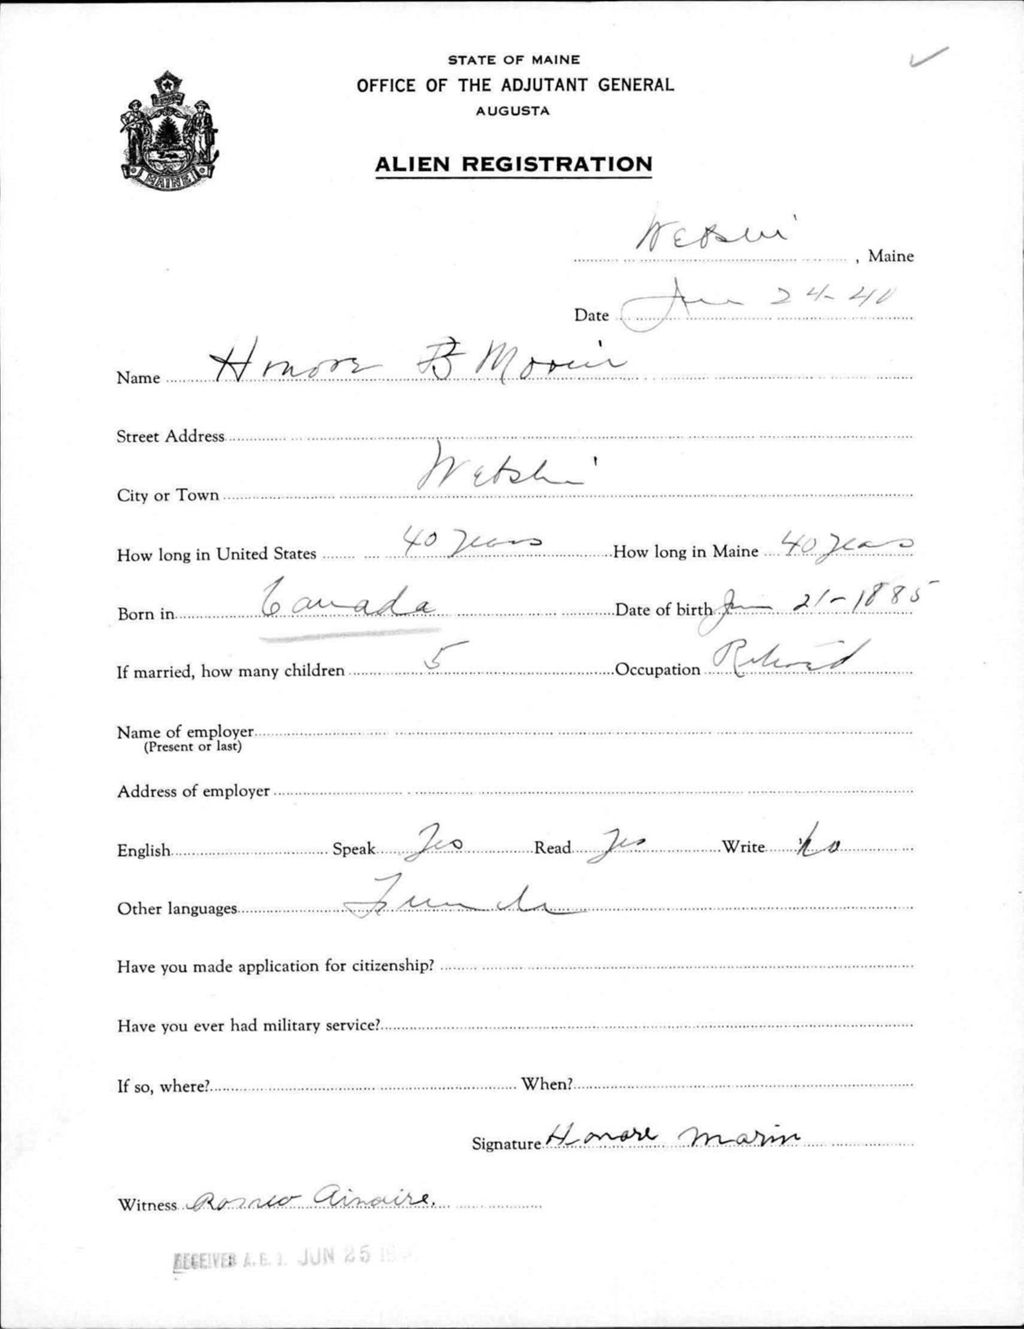 STATE OF MAINE
OFFICE OF THE ADJUTANT GENERAL
AUGUSTA
ALIEN REGISTRATION
MAINE
, Maine
Date June 24-40
Name Honore B Morin
Street Address
City or Town
How long in United States 40 years How long in Maine 40 years
Born in Canada Date of birth 21-1885
If married, how many children 5 Occupation
Name of employer
(Present or last)
Address of employer
English Speak Yes Read Yes Write No
Other languages French
Have you made application for citizenship?
Have you ever had military service?
If so, where? When?
Signature Honore Morin
Witness Romeo
RECEIVED A.G.O. JUN 25